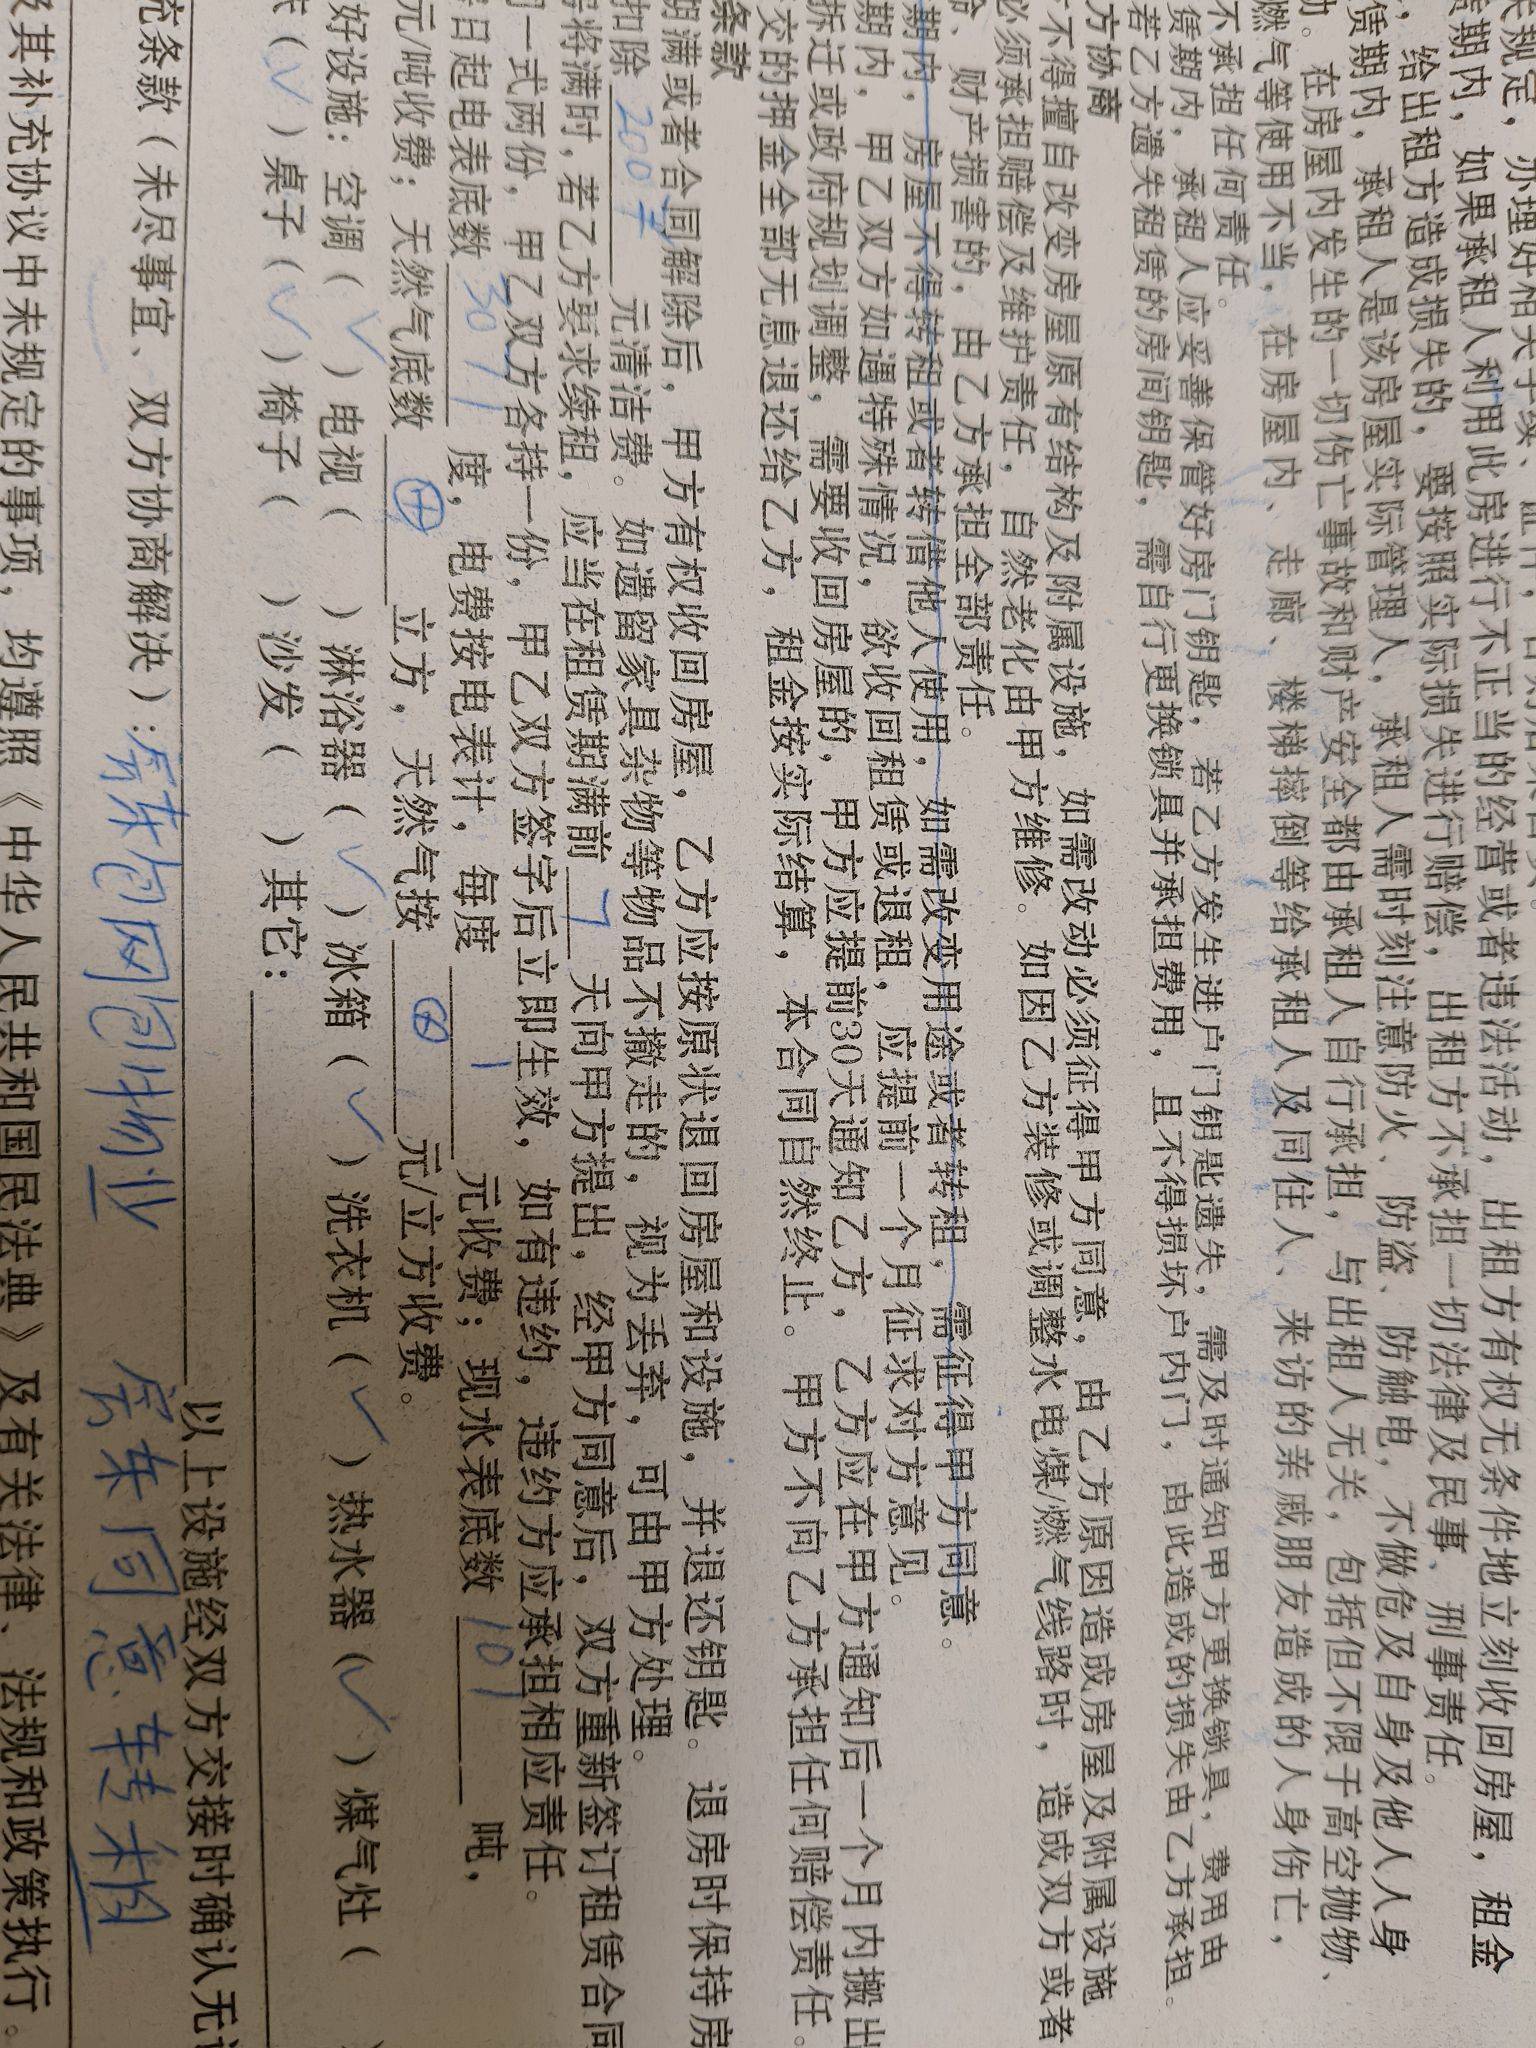 关规定，办理好相关手续、证件，否则后果自负。
赁期内，如果承租人利用此房进行不正当的经营或者违法活动，出租方有权无条件地立刻收回房屋，租金
，给出租方造成损失的，要按照实际损失进行赔偿，出租方不承担一切法律及民事、刑事责任。
赁期内，承租人是该房屋实际管理人，承租人需时刻注意防火、防盗、防触电，不做危及自身及他人人身
动。在房屋内发生的一切伤亡事故和财产安全都由承租人自行承担，与出租人无关，包括但不限于高空抛物、
燃气等使用不当，在房屋内、走廊、楼梯摔倒等给承租人及同住人、来访的亲戚朋友造成的人身伤亡，
不承担任何责任。
赁期内，承租人应妥善保管好房门钥匙，若乙方发生进户门钥匙遗失，需及时通知甲方更换锁具，费用由
若乙方遗失租赁的房间钥匙，需自行更换锁具并承担费用，且不得损坏户内门，由此造成的损失由乙方承担。
方协商
不得擅自改变房屋原有结构及附属设施，如需改动必须征得甲方同意，由乙方原因造成房屋及附属设施
必须承担赔偿及维护责任，自然老化由甲方维修。如因乙方装修或调整水电煤燃气线路时，造成双方或者
、财产损害的，由乙方承担全部责任。
期内，房屋不得转租或者转借他人使用，如需改变用途或者转租，需征得甲方同意。
期内，甲乙双方如遇特殊情况，欲收回租赁或退租，应提前一个月征求对方意见。
拆迁或政府规划调整，需要收回房屋的，甲方应提前30天通知乙方，乙方应在甲方通知后一个月内搬出
交的押金全部无息退还给乙方，租金按实际结算，本合同自然终止。甲方不向乙方承担任何赔偿责任。
条款
期满或者合同解除后，甲方有权收回房屋，乙方应按原状退回房屋和设施，并退还钥匙。退房时保持房
扣除 200元 元清洁费。如遗留家具杂物等物品不撤走的，视为丢弃，可由甲方处理。
将满时，若乙方要求续租，应当在租赁期满前 7 天向甲方提出，经甲方同意后，双方重新签订租赁合同
一式两份，甲乙双方各持一份，甲乙双方签字后立即生效，如有违约，违约方应承担相应责任。
日起电表底数 3071 度，电费按电表计，每度 1 元收费；现水表底数 101 吨，
元/吨收费；天然气底数 立方，天然气按 元/立方收费。
好设施：空调（✓）电视（ ）淋浴器（✓）冰箱（✓）洗衣机（✓）热水器（✓）煤气灶（
（✓）桌子（✓）椅子（ ）沙发（ ）其它：
以上设施经双方交接时确认无
充条款（未尽事宜、双方协商解决）：房东包网包物业 房东同意转租
及其补充协议中未规定的事项，均遵照《中华人民共和国民法典》及有关法律、法规和政策执行。